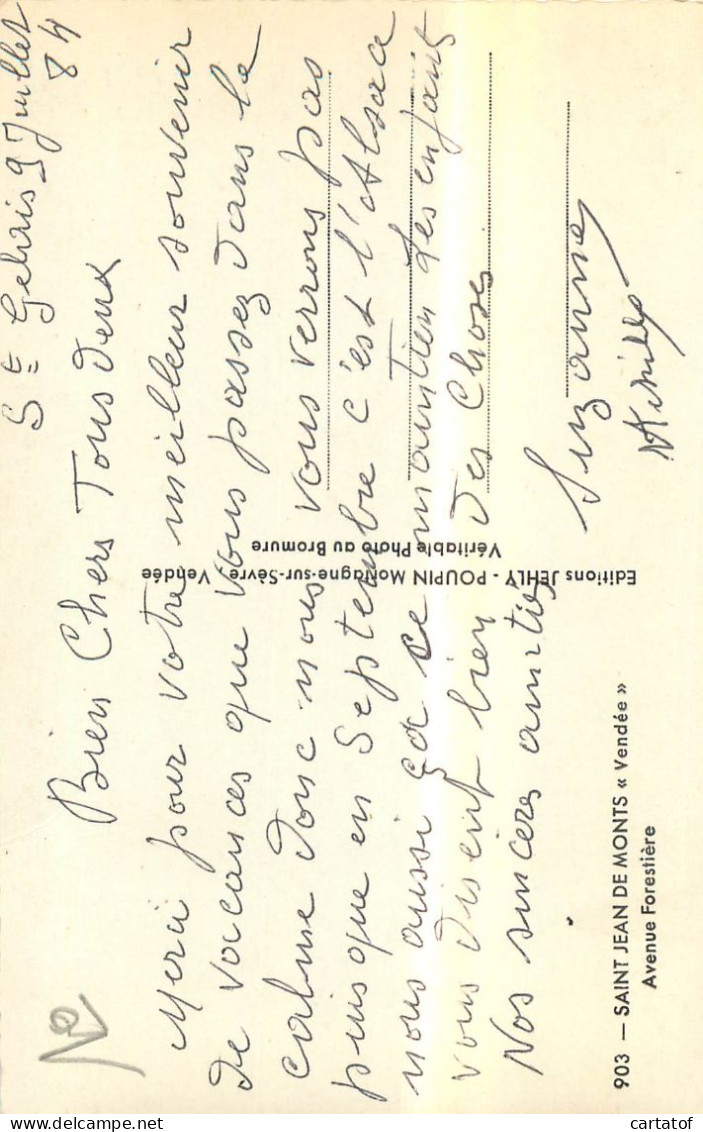 St Gervais 9 Juillet
84
Bien Chers Tous Deux
Merci pour votre meilleur souvenir
de vacances que vous passez dans le
calme donc nous vous verrons pas
puisque en Septembre c'est l'Alsace
nous aussi ça se maintien les enfants
vous disent bien des choses
Nos sincères amitiés
Suzanne
903 — SAINT JEAN DE MONTS « Vendée »
Avenue Forestière
Editions JEHLY - POUPIN Mortagne-sur-Sèvre, Vendée
Véritable Photo au Bromure
cartatof